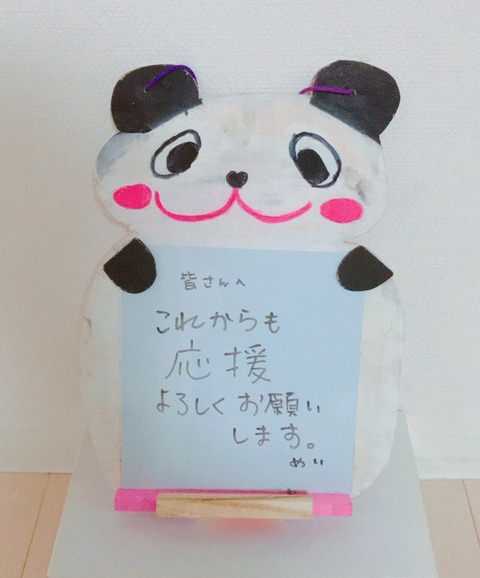 皆さんへ
これからも
応援
よろしくお願い
します。
めい